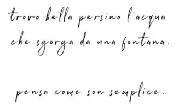 trovo bella persino l'acqua
che sgorga da una fontana.
penso come son semplice.